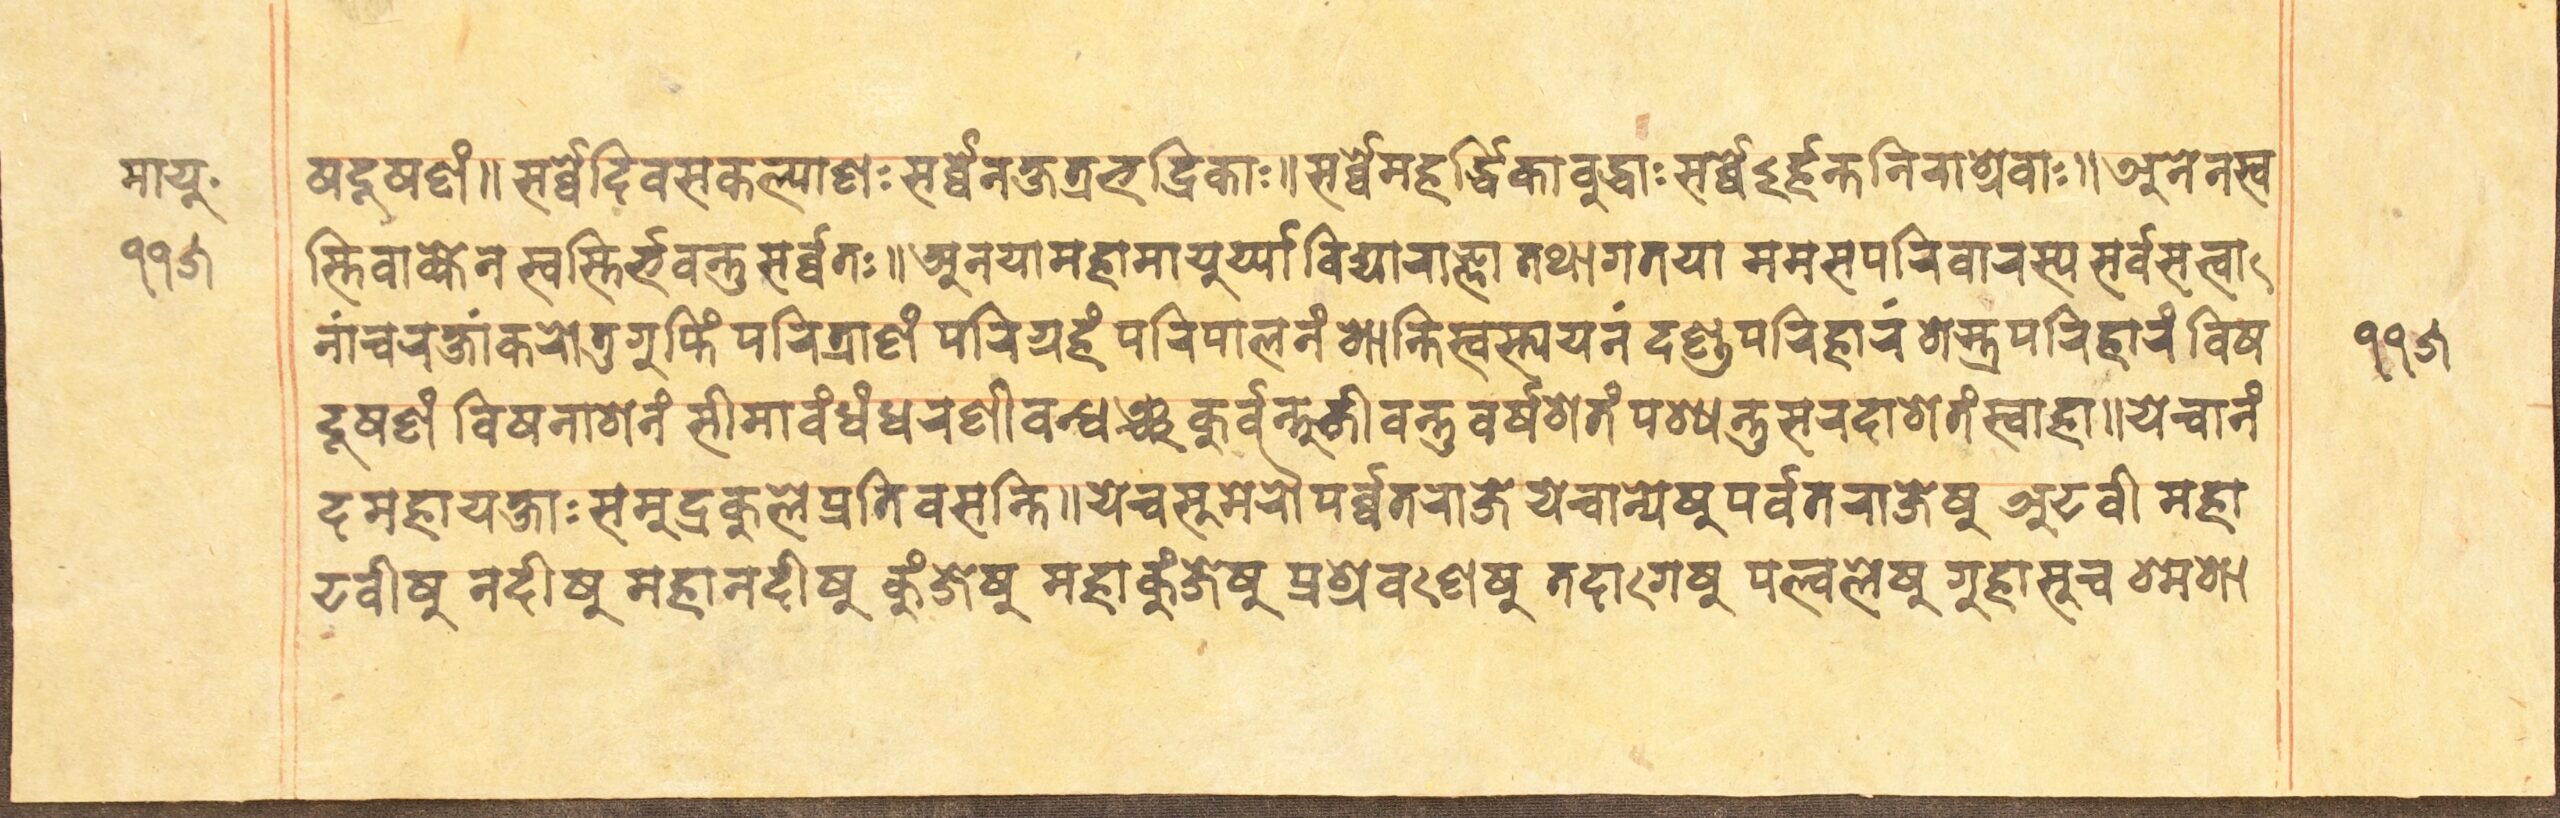 मायु·
११५
षदूषणं॥ सर्व्वेदिवसकल्याणः सर्व्वेनक्षत्रभद्रिकाः॥ सर्व्वेमहर्द्धिकाबुद्धाः सर्व्वेऽर्हन्तनिराश्रवाः॥ अनेनस्व
स्तिवाक्येन स्वस्तिर्भवन्तु सर्व्वतः॥ अनयामहामायुर्य्या विद्याराज्ञा तथागतया ममसपरिवारस्य सर्वसत्वा
नांचरक्षांकरोतु गुप्तिं परित्राणं परिग्रहं परिपालनं शान्तिस्वस्त्ययनं दण्डपरिहारं शस्त्रपरिहारं विष
दूषणं विषनाशनं सीमाबंधंधरणीबन्धञ्च कुर्वन्तुजीवन्तु वर्षशतं पश्यन्तु सरदाशतं स्वाहा॥ येचानं
दमहायक्षाः समुद्रकुलेप्रतिवसन्ति॥ येचसुमेरौपर्व्वतराजे येचान्येषु पर्वतराजेषु अटवी महा
टवीषु नदीषु महानदीषु कुंजेषु महाकुंजेषु प्रश्रवणेषु तदागेषु पल्वलेषु गुहासुच श्मशा
११५